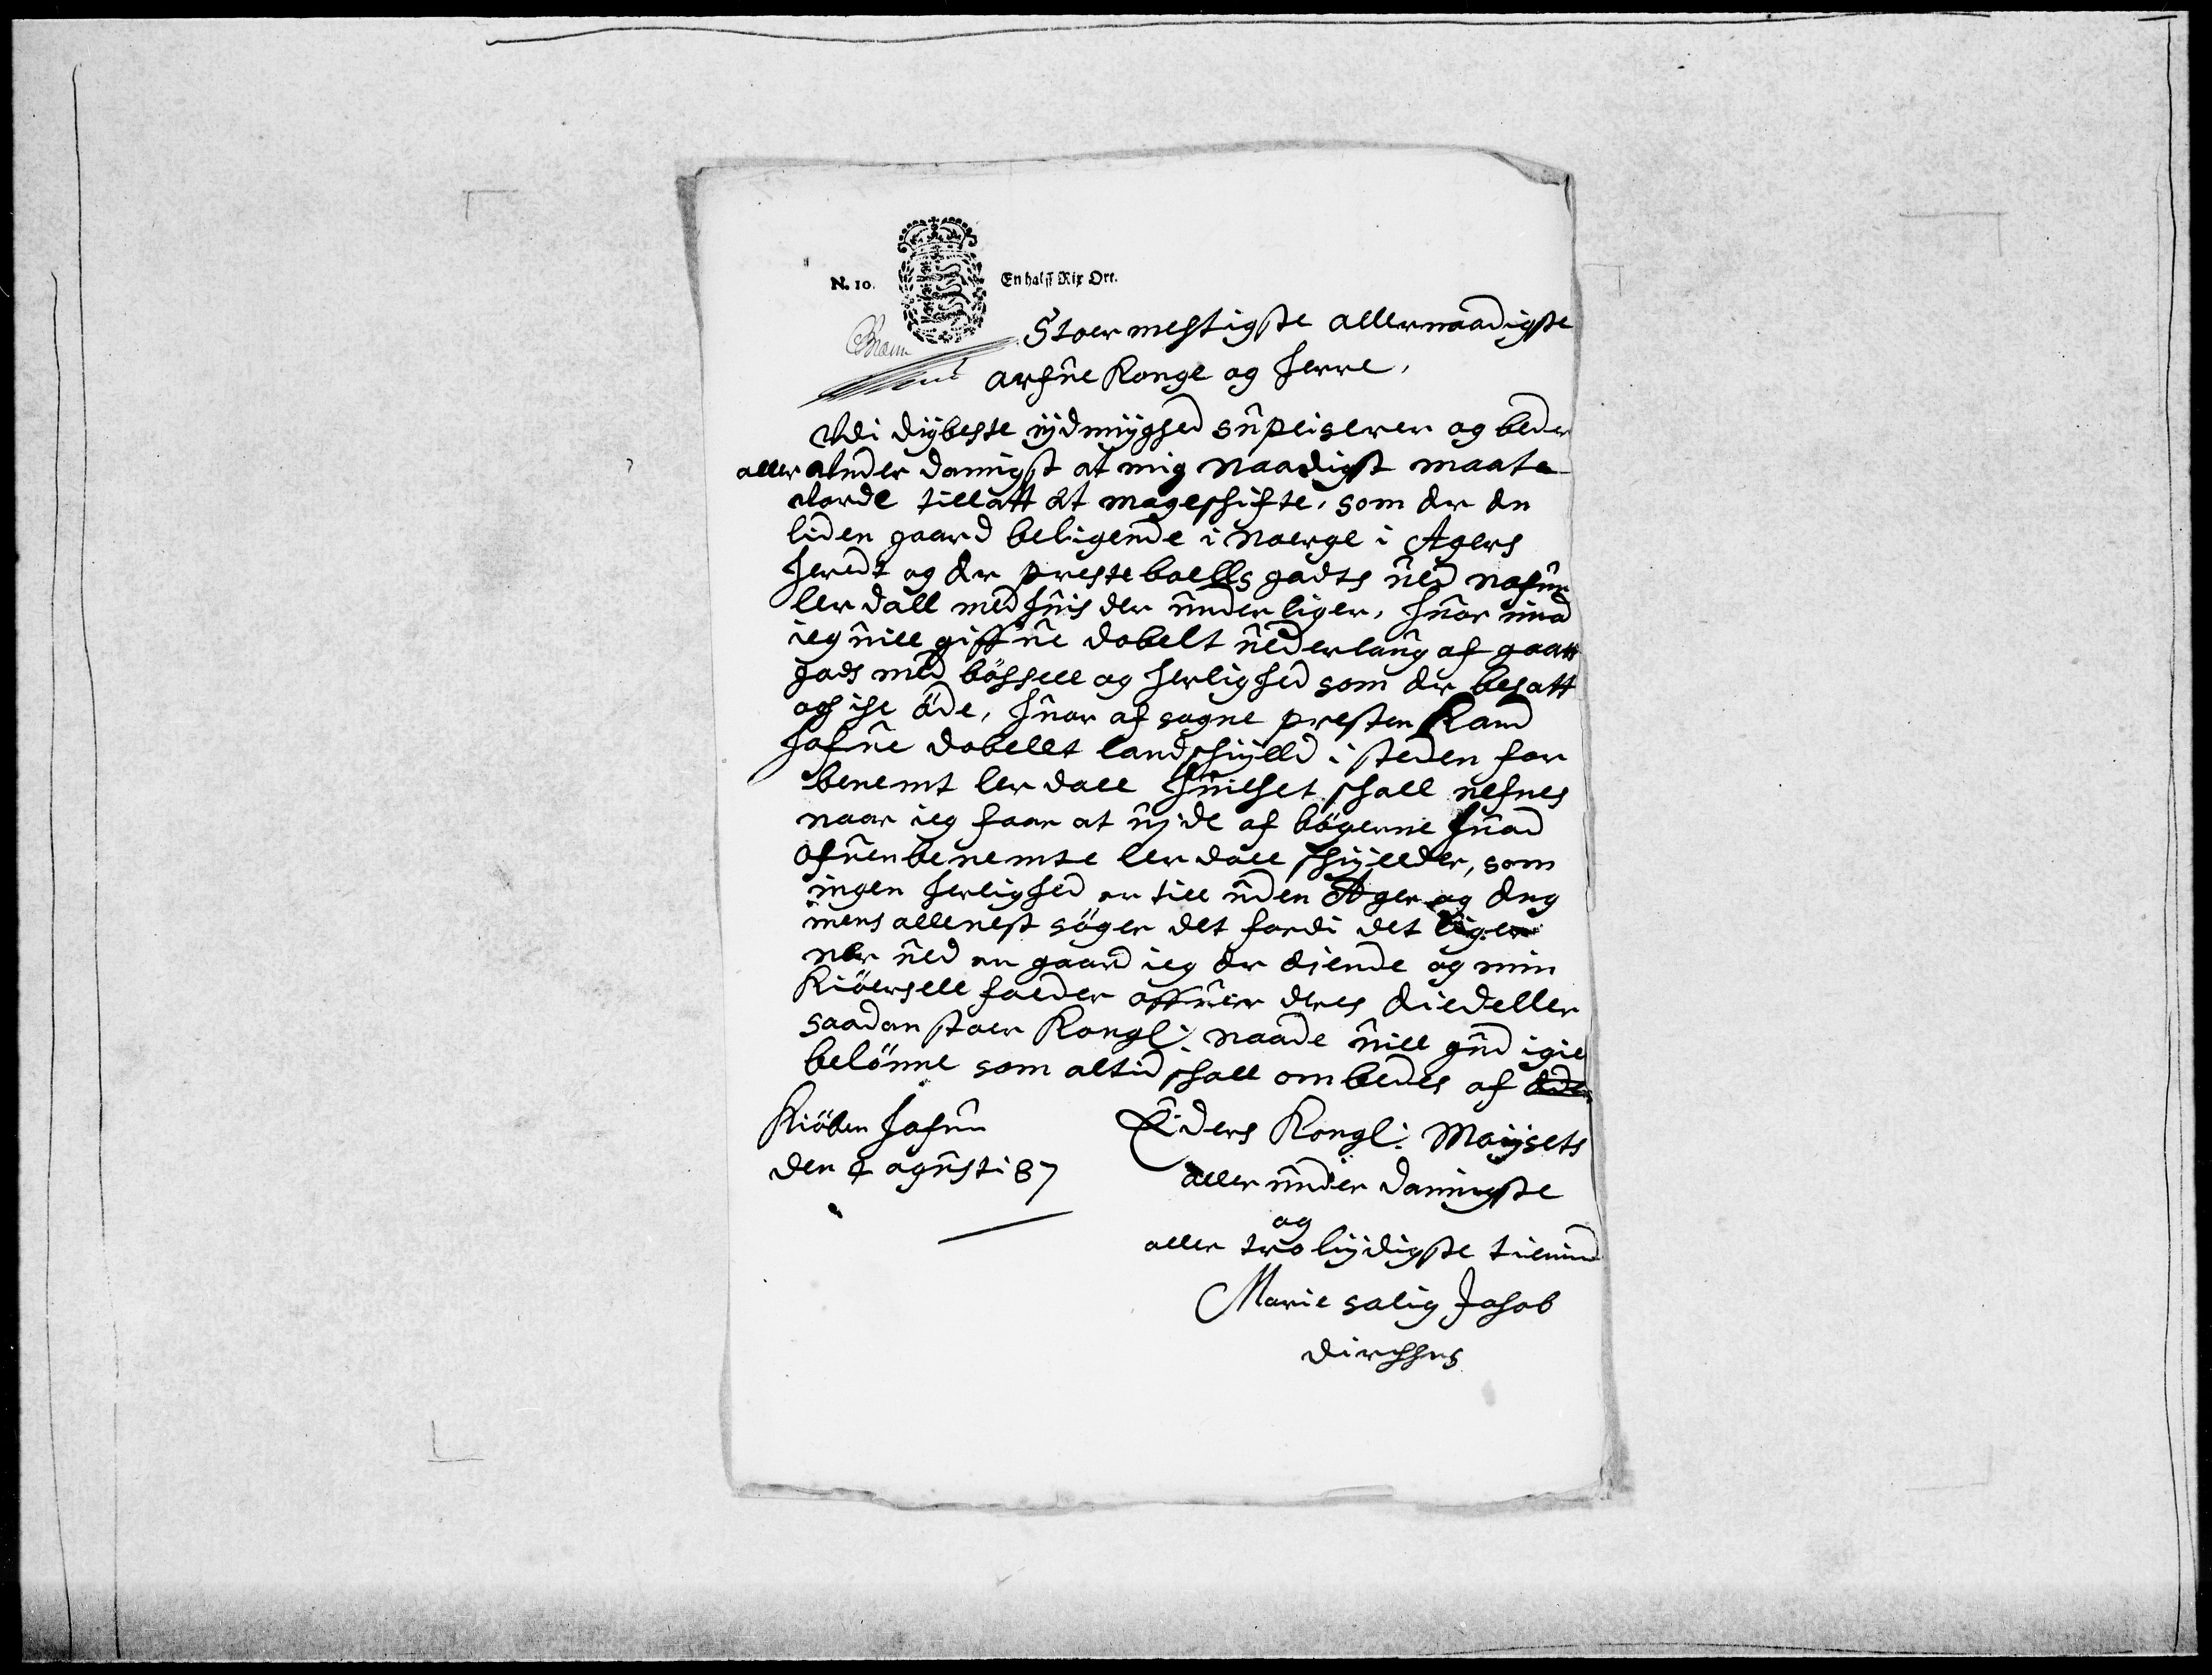 N. 10. En halff Rix Ort.
Stoer megtigste allernaadigste
arfue Konge og herre,
Udi dybeste ydmyghed supliserer og beder
aller under danigst at mig naadigst maate
vorde tillatt at mageschifte, som er en
liden gaard beligende i Noerge i Agers
heredt og er preste boells gadts ved nafn
ler dall med huis der under liger, huor imod
ieg uill giffue dobelt vederlaug af gaatt
gods med böxsell og herlighed som er besatt
och ike öde, huor af sogne presten Kand
hafue dobellt landschylld i steden for
benemt ler dall huilchet schall nefnes
naar ieg faar at vide af bögerne huad
ofuenbenemte ler dall schyllder, som
ingen herlighed er till uden Ager og Eng
mens allenest söger det fordi det liger
ner ved en gaard ieg er eiende og min
Kiöersell falder offuer deres Eiedeller
saadan stoer Kongl: naade uill gud igien
belönne som altid schall ombedes af
Kiöben hafuen
den 4 agusti 87
Eders Kongl: Maysets
aller under danigste
og
aller tro lydigste tienerind
Marie salig Jahob
dirchsens